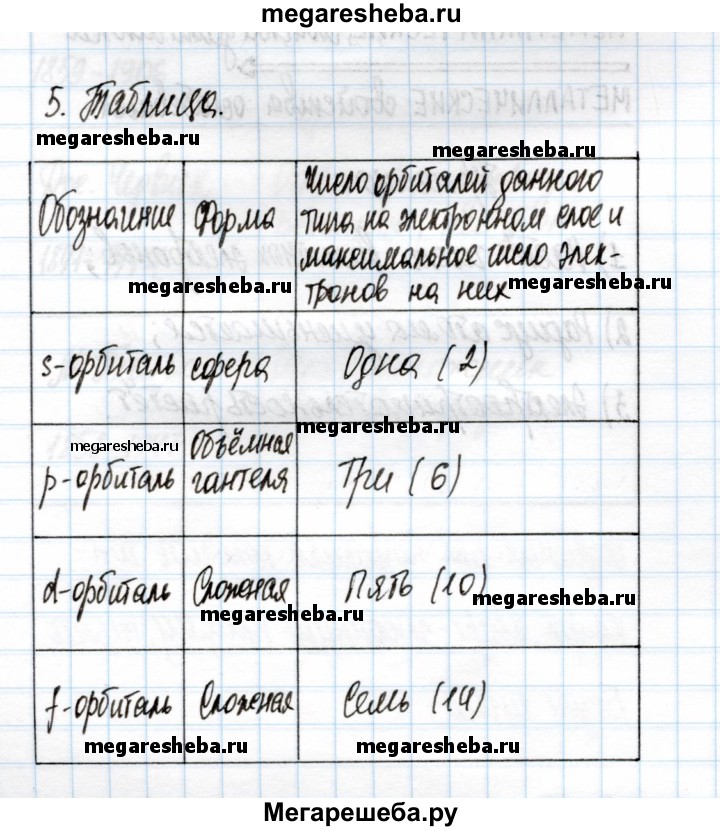 megaresheba.ru
5. Таблица.
megaresheba.ru
megaresheba.ru
Обозначение
Форма
Число орбиталей данного
типа на электронном слое и
максимальное число элек-
тронов на них
megaresheba.ru
megaresheba.ru
s-орбиталь
сфера
Одна (2)
megaresheba.ru
megaresheba.ru
p-орбиталь
Объёмная
гантеля
Три (6)
d-орбиталь
Сложеная
Пять (10)
megaresheba.ru
megaresheba.ru
f-орбиталь
Сложеная
Семь (14)
megaresheba.ru
megaresheba.ru
Мегарешеба.ру